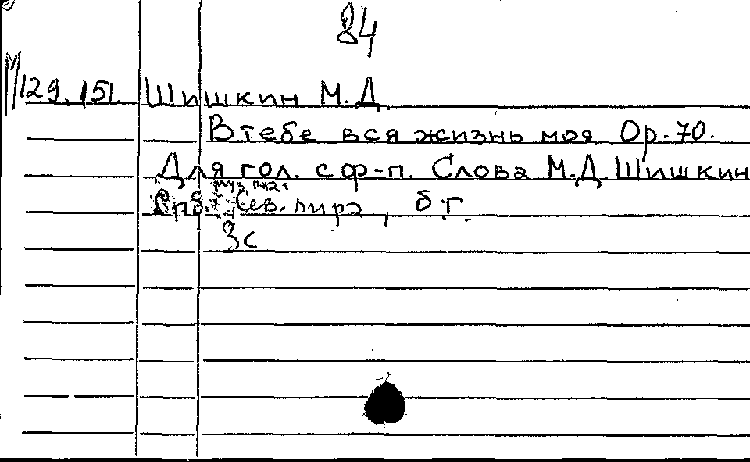 84
М129.151 Шишкин М.Д
В тебе вся жизнь моя. Ор.70.
Для гол. с ф-п. Слова М.Д Шишкин
Спб. Сев. лира, б г.
3с